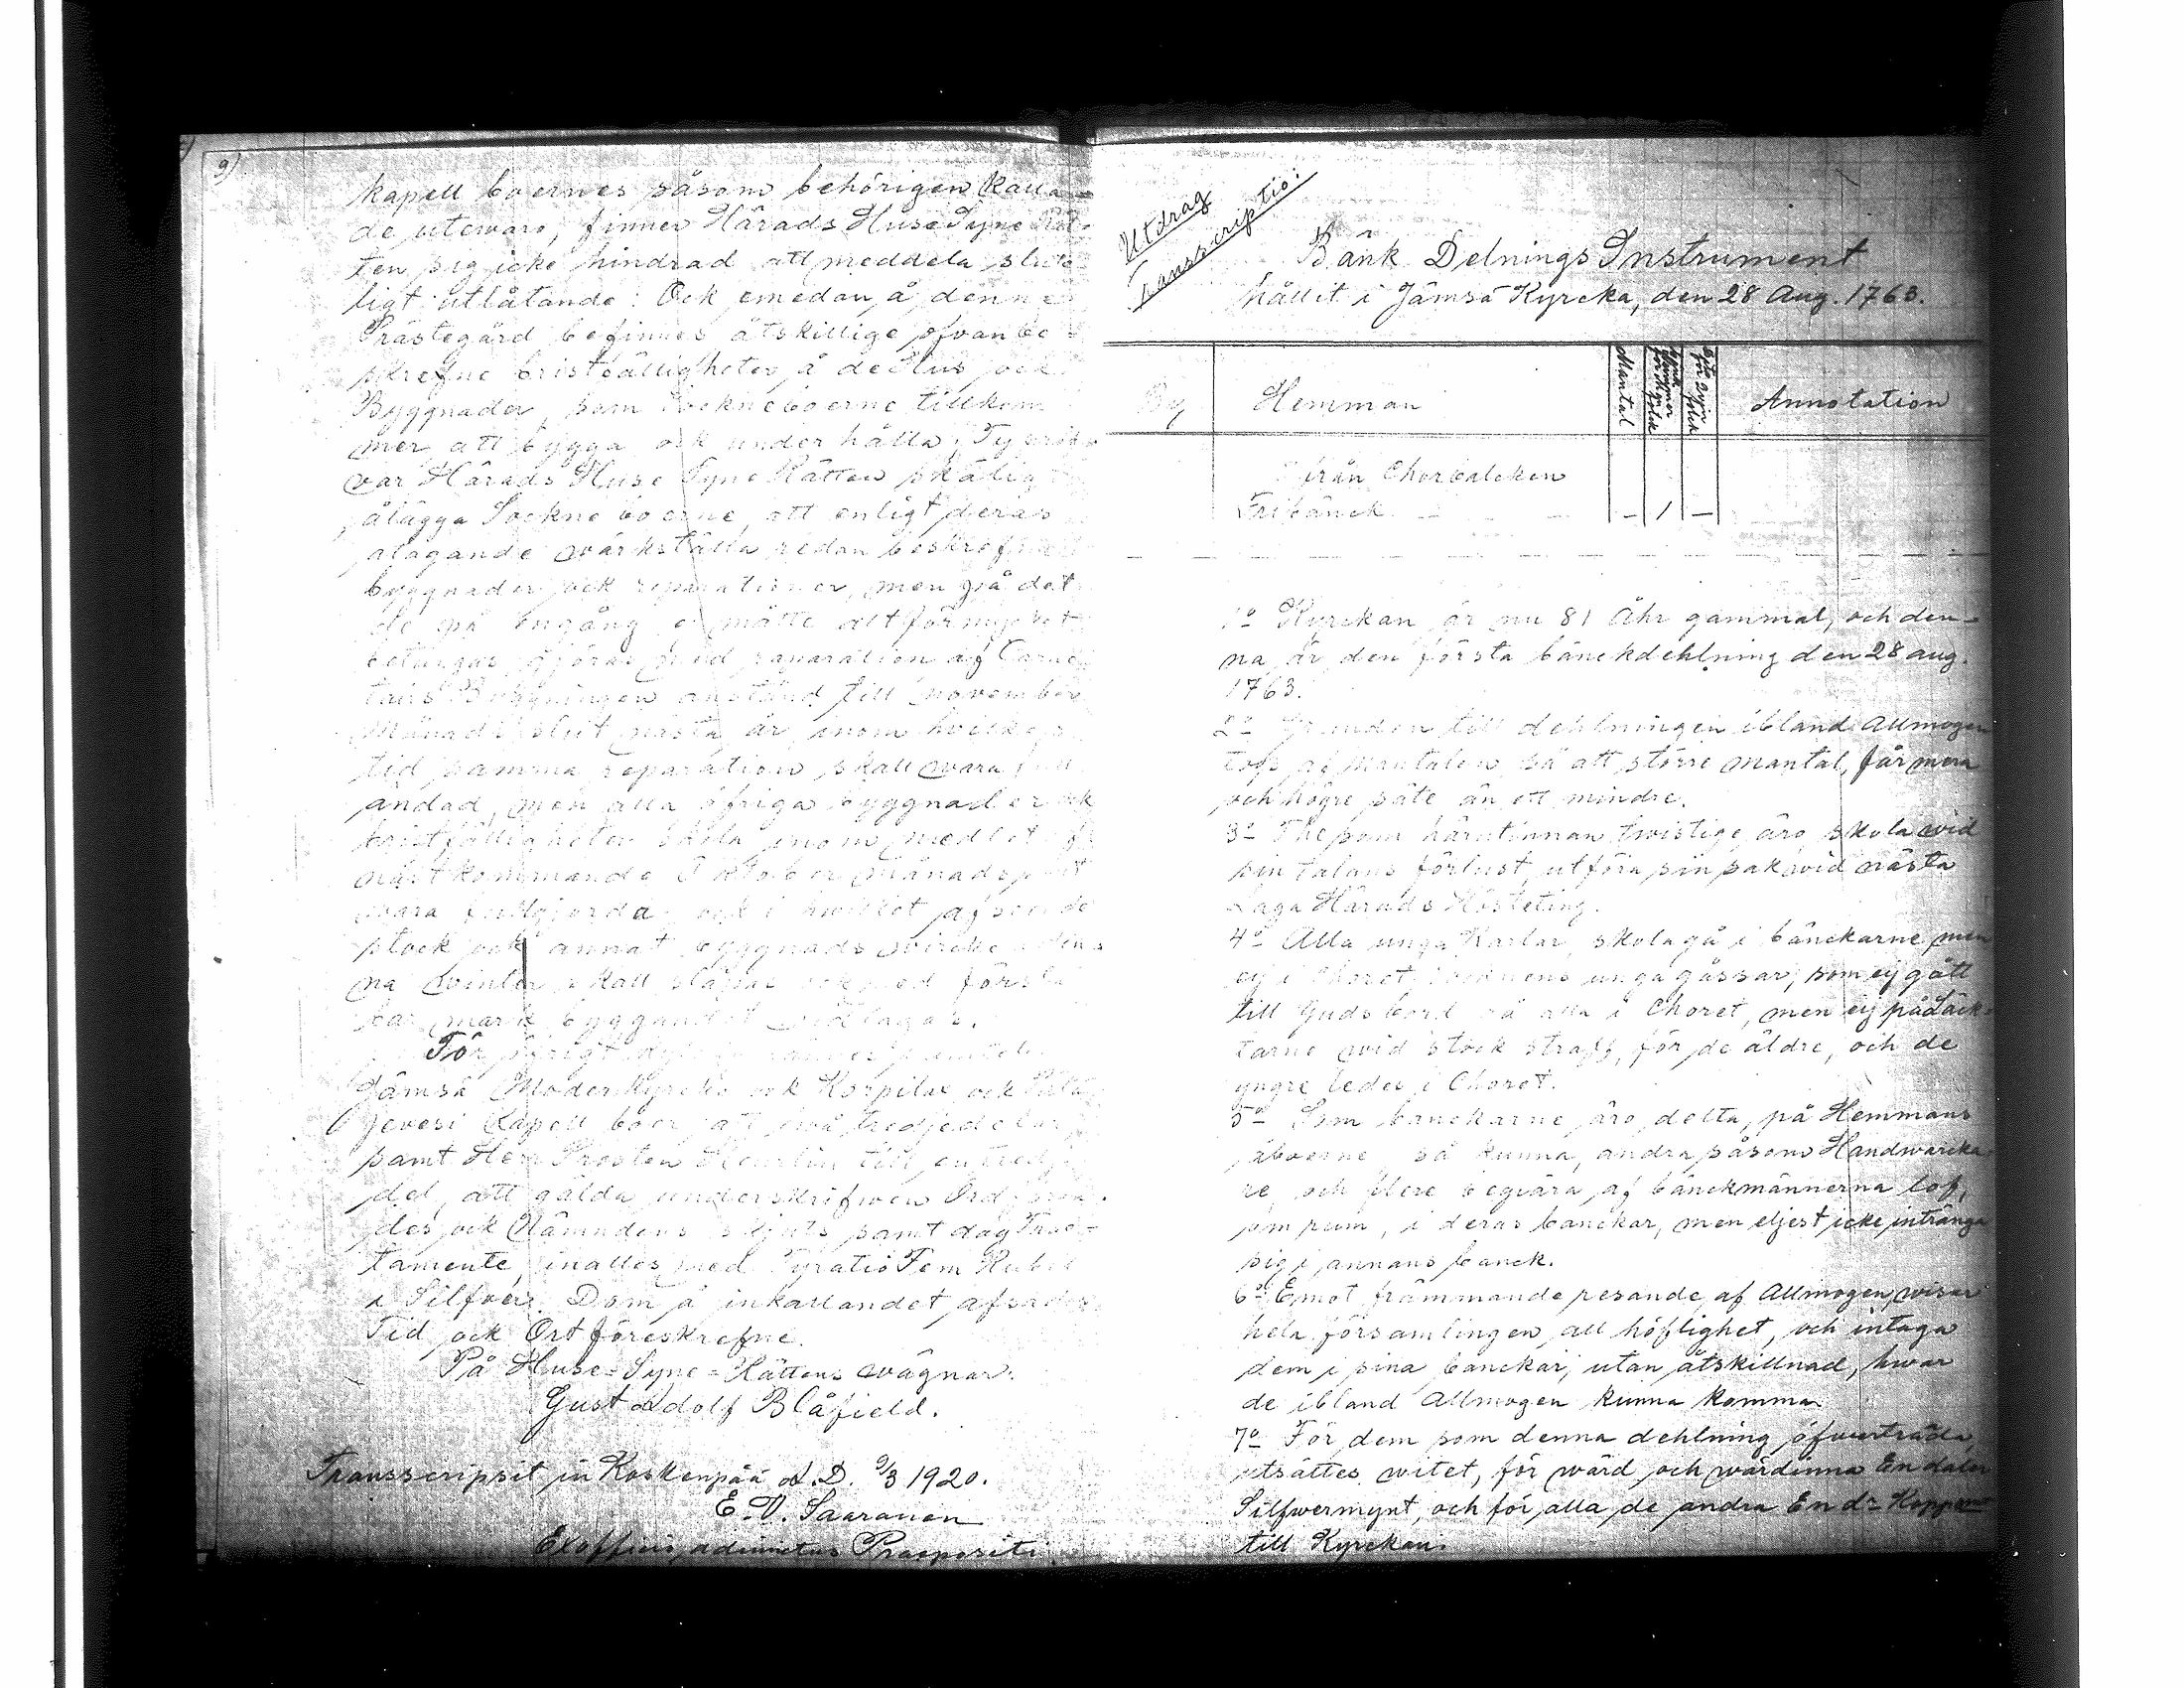 9)
kapell boernes såsom behörigen kalla=
de utewaro, finner Härads HuseSyne Rät=
ten sig icke hindrad att meddela slute=
ligt utlåtande: Ock emedan å denne
Prästegård befinnes åtskillige ofvan be
skrefne bristfälligheter å de Hus ock
Byggnader, som Sockneboerne tillkom
mer att bygga ock underhålla;
var Härads Huse Syne Rätten skälig
ålägga Sockneboerne, att enligt deras
åtagande värkställa redan beskrefne
byggnader ock reparationer, men på det
de på engång ej måtte altförmycket
betungas, göras med reparation af
Byggningen anstånd till november
Månads slut nästa år, inom hvilken
tid samma reparation skall vara full
ändad, men alla öfriga byggnader ock
bristfälligheter skola inom medlet af
nästkommande October månad
vara fullgjorda, ock i hwilket afseende
stock ock annat byggnads wircke denn
na winter skall släpas ock med första
bar mark byggandet widtagas.
För öfrigt
Jämsä Moderkyrcko ock Korpilax ock
jevesi Kapell boer att två tredjedelar,
samt Herr Prosten till en tredje
del, att gälda underskrifwen
des ock Nämndens skjuts samt dag Trac=
tamente, inalles med Fyratio Fem Rubel
i Silfver. Dom å inkallandet afsades
Tid ock Ort föreskrefne.
På Huse=Syne=Rättens wägnar:
Gust Adolf Blåfield.
Transscripsit in Koskenpää A.D. 9/3 1920.
E. V. Saaranen
Ex officio adiunctus Praepositi.
Utdrag
Transscriptio:
Bänk Delnings Instrument
hållit i Jämsä Kyrcka, den 28 Aug. 1763.
By
Hemman
Mantal
Annotation
från Chorbalcken
Fribänck – – – 1 –
1º Kyrckan är nu 81 Åhr gammal, och den=
na är den första bänckdehlning den 28 aug.
1763.
2º Grunden till dehlningen ibland Allmogen
togs af Mantalen så att större mantal, får mera
och högre säte än ett mindre.
3º The som härutinnan twistige äro, skola wid
sin talans förlust, utföra sin sak wid nästa
Laga Härads Hösteting.
4º Alla unga Karlar skola gå i bänckarne men
ej i Choret, socknens unga gåssar, som ej gått
till Guds bord gå alla i Choret, men ej på Läck=
tarne wid stock straff, för de äldre, och de
yngre ledes i Choret.
5º Som bänckarne äro delta, på Hemmans
åboerne, så kunna, andra såsom Handwärcka
re, och flere begiära af bänckmännerna lof,
om rum, i deras bänckar, men eljest icke intränga
sig i annans bänck.
6º Emot främmande resande af Allmogen, wisar
hela församlingen all höflighet, och intaga
dem i sina bänckar, utan åtskillnad, hwar
de ibland Allmogen kunna komma
7º För dem som denna dehlning öfwerträda,
utsättes witet, för wärd och wärdinna En daler
Silfwermynt, och för alla de andra En dr Kopparm
till Kyrckan.